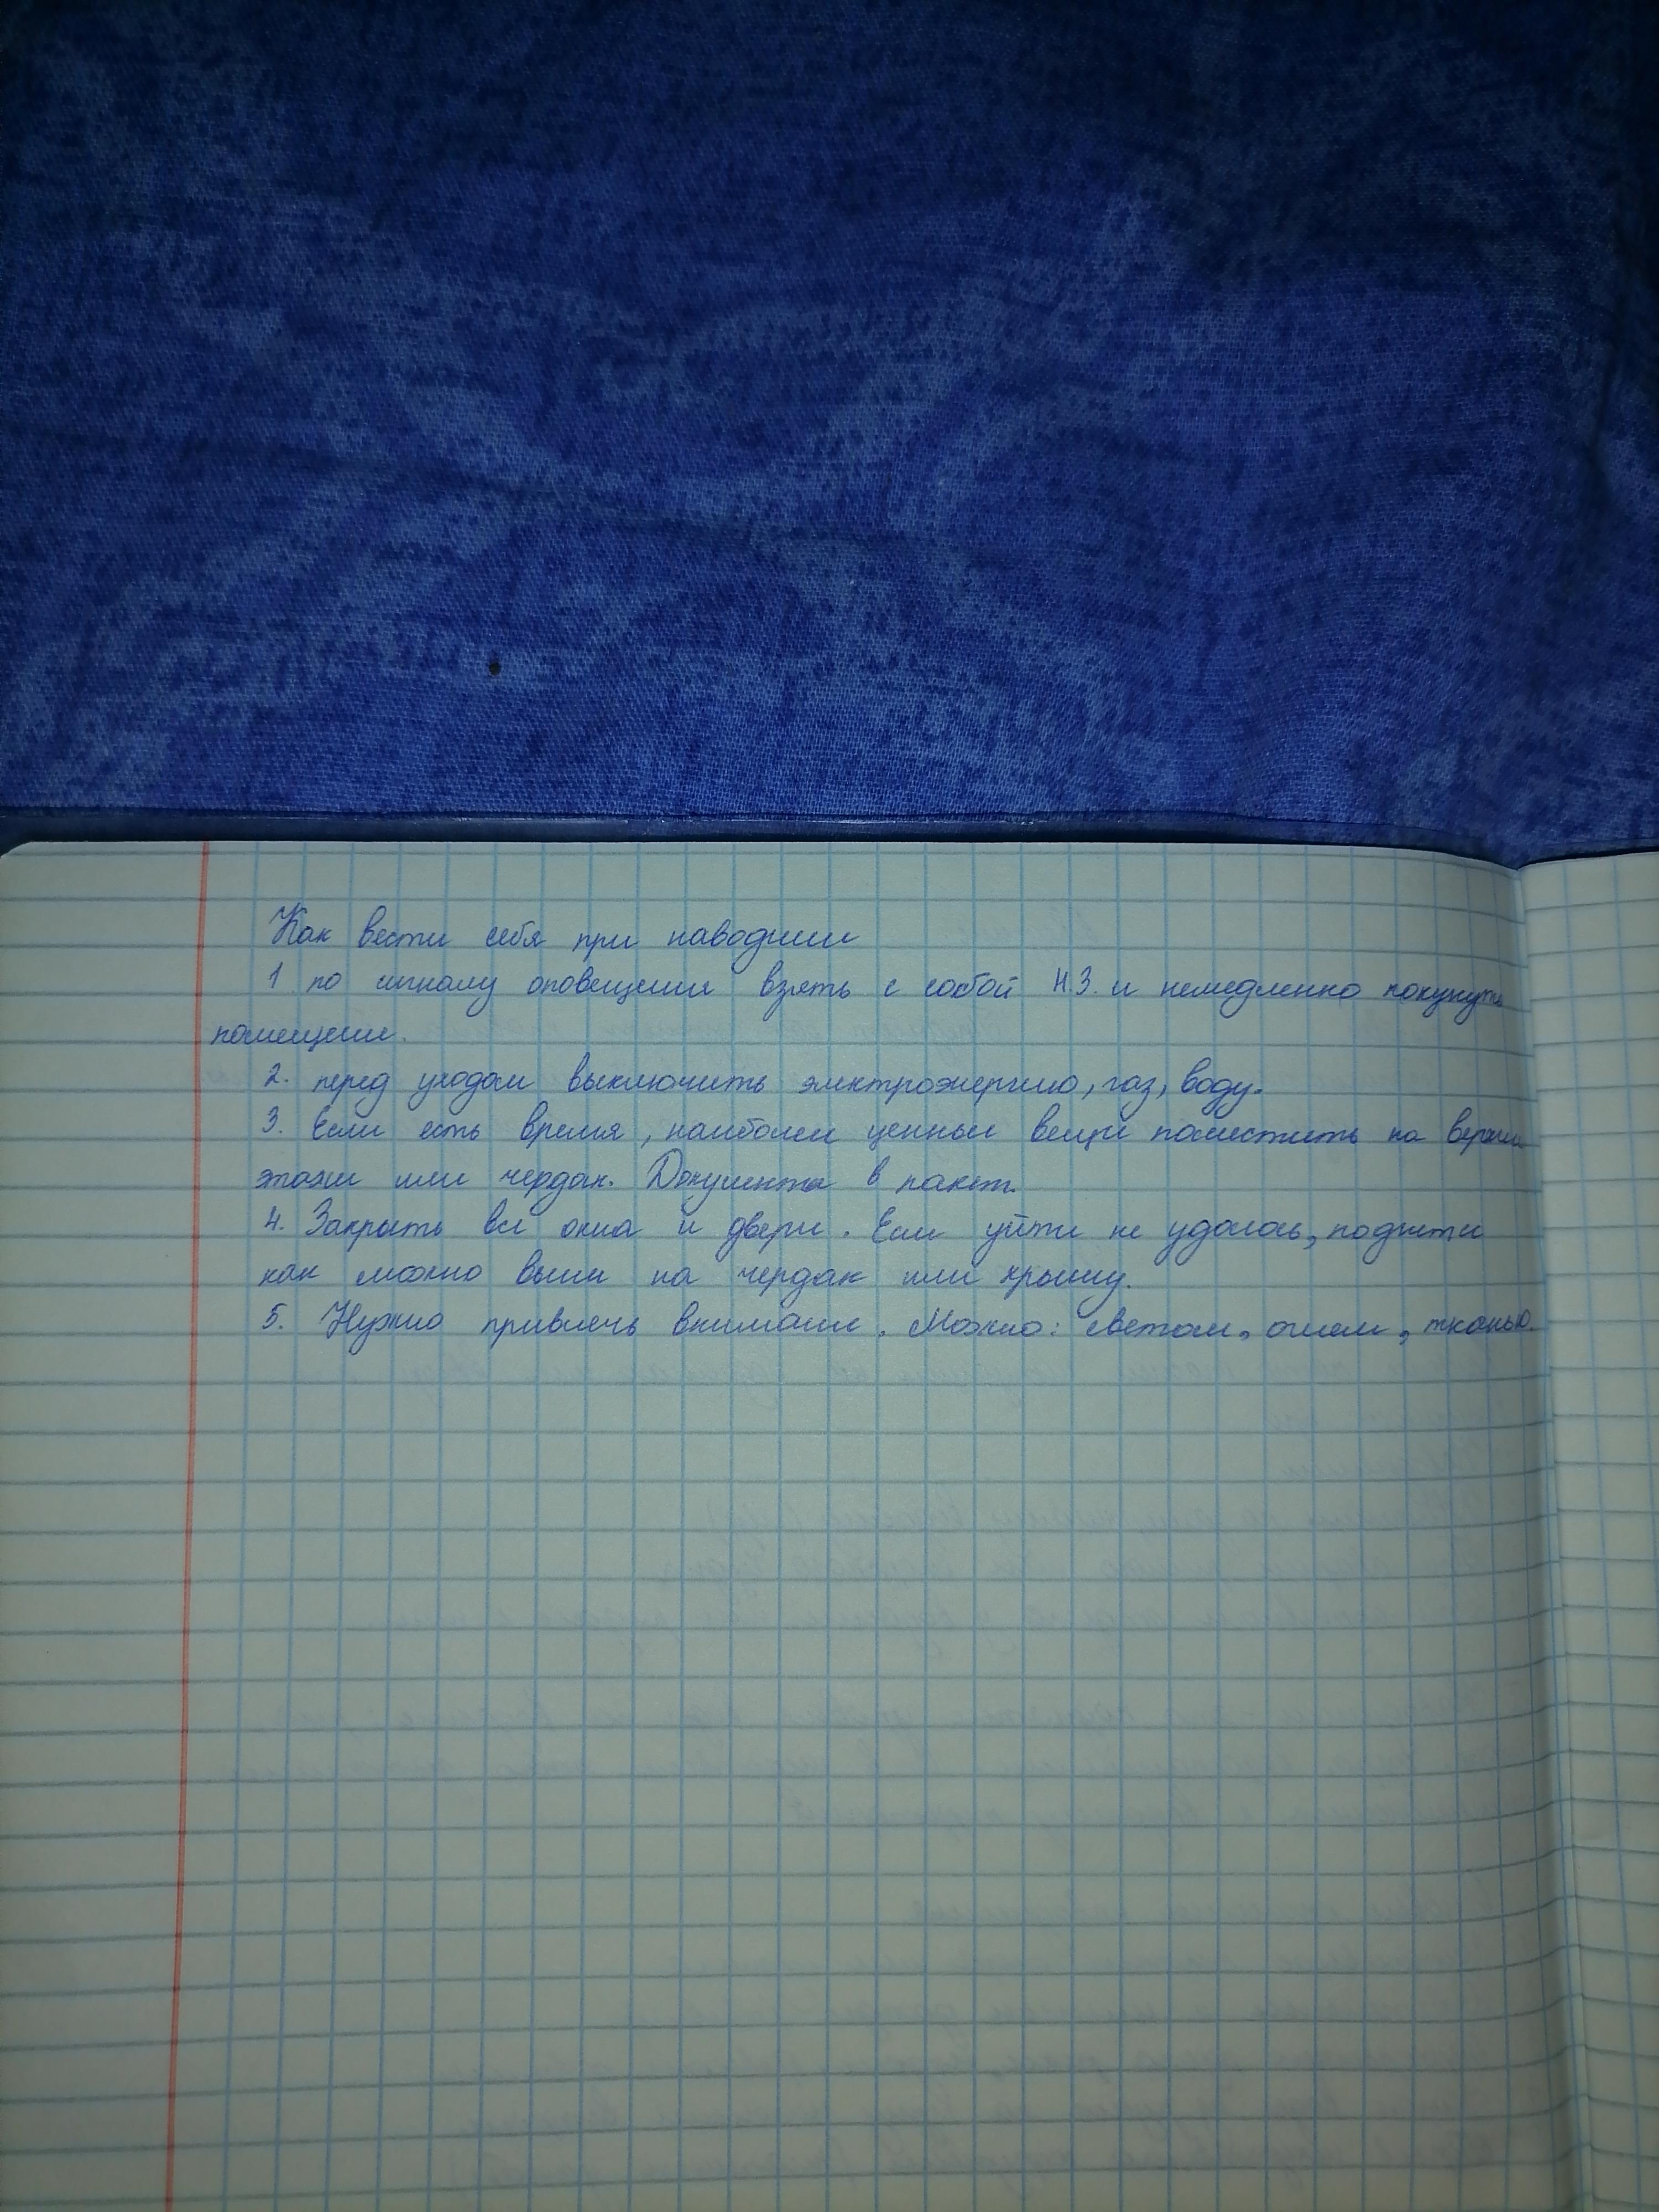 Как вести себя при наводнении
1 по сигналу оповещения взять с собой Н.З. и немедленно покунуть
помещение.
2. перед уходом выключить электроэнергию, газ, воду.
3. Если есть время, наиболее ценные вещи поместить на верхние
этажи или чердак. Документы в пакет.
4. Закрыть все окна и двери. Если уйти не удалось, поднятие
как можно выше на чердак или крышу.
5. Нужно привлечь внимание. Можно: светом, огнем, тканью.